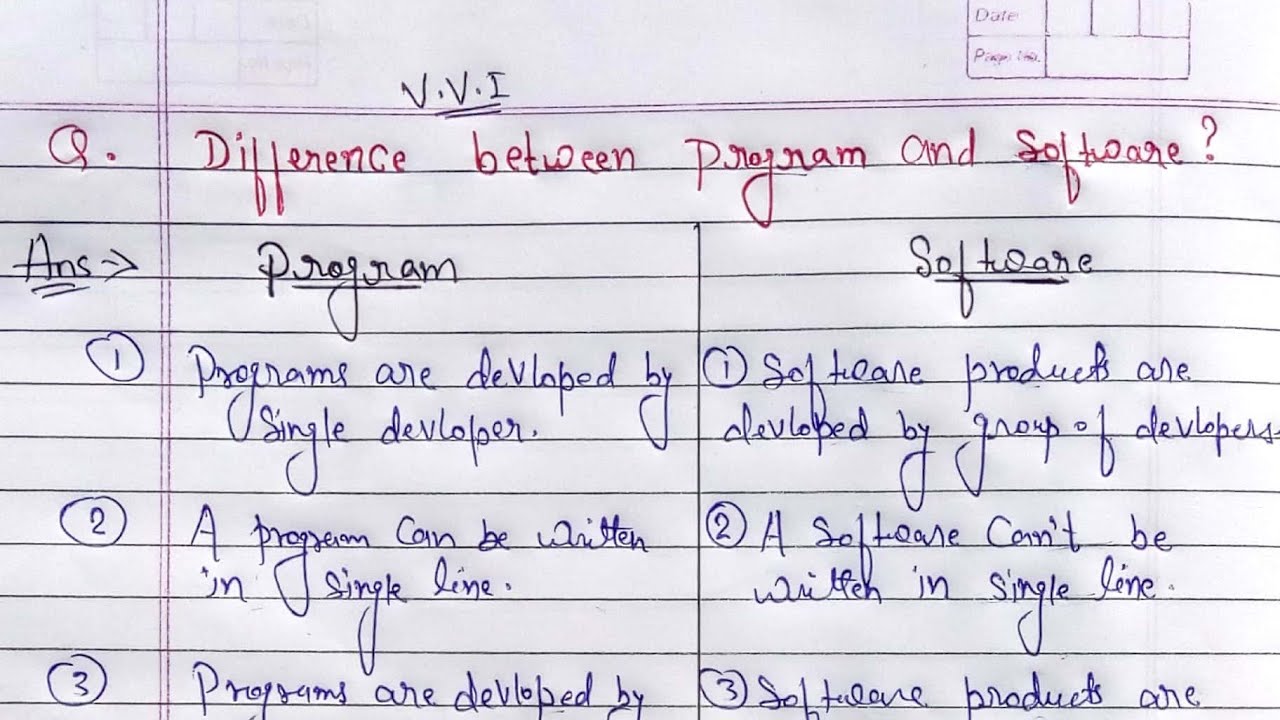 Date
Page No.
V.V.I
Q. Difference between program and Software?
Ans → Program
Software
① Programs are devloped by
Single devloper.
① Software products are
devloped by group of devlopers.
② A program Can be written
in single line.
② A Software Can't be
written in single line.
③ Programs are devloped by
③ Software products are